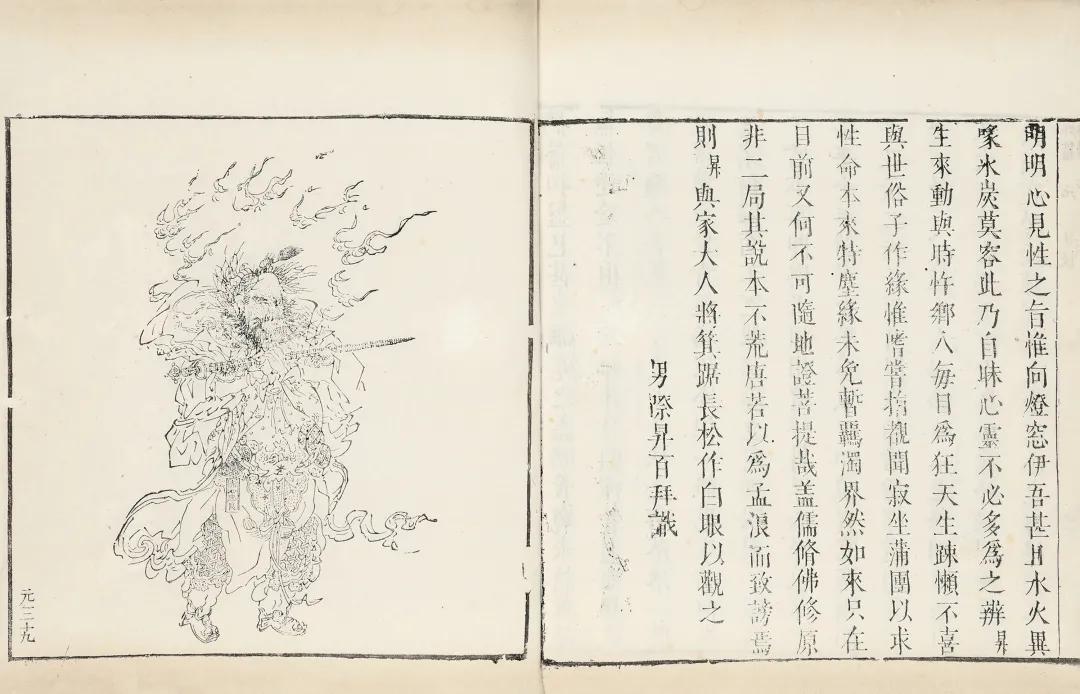 明明心見性之旨惟向燈窓伊吾甚且水火異
喙氷炭莫容此乃自昧心靈不必多爲之辨昇
生來動與時忤鄉人每目爲狂天生踈懶不喜
與世俗子作緣惟嗜嘗覩聞寂坐蒲團以求
性命本來特塵緣未免暫羈濁界然如來只在
目前又何不可隨地證菩提哉盖儒脩佛修原
非二局其說本不荒唐若以爲孟浪而致謗焉
則昇與家大人將箕踞長松作白眼以觀之
男際昇百拜識
元三九